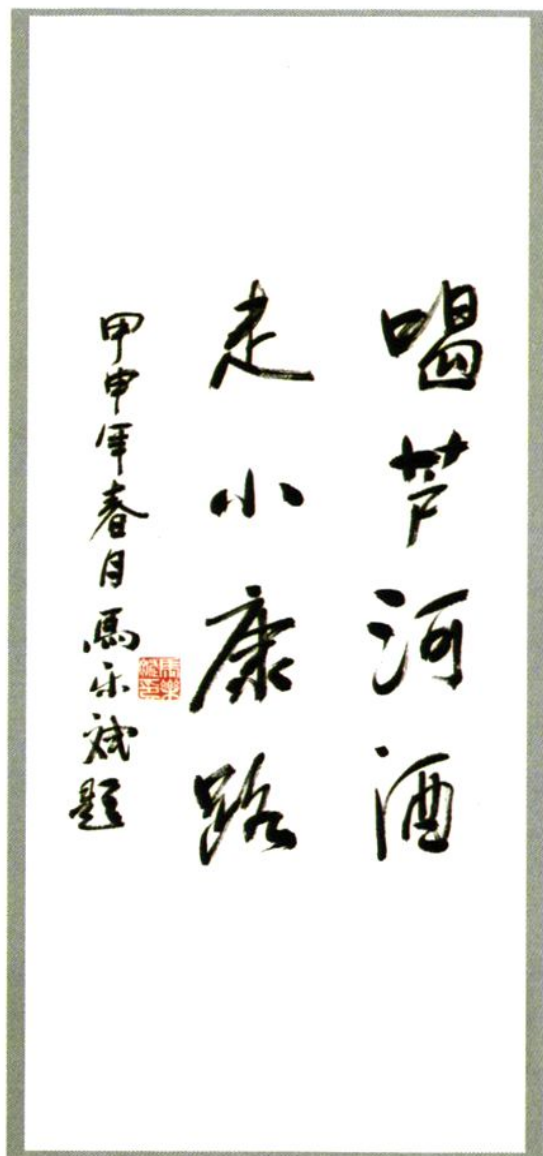 喝芦河酒
走小康路
甲申年春月馬乐斌題